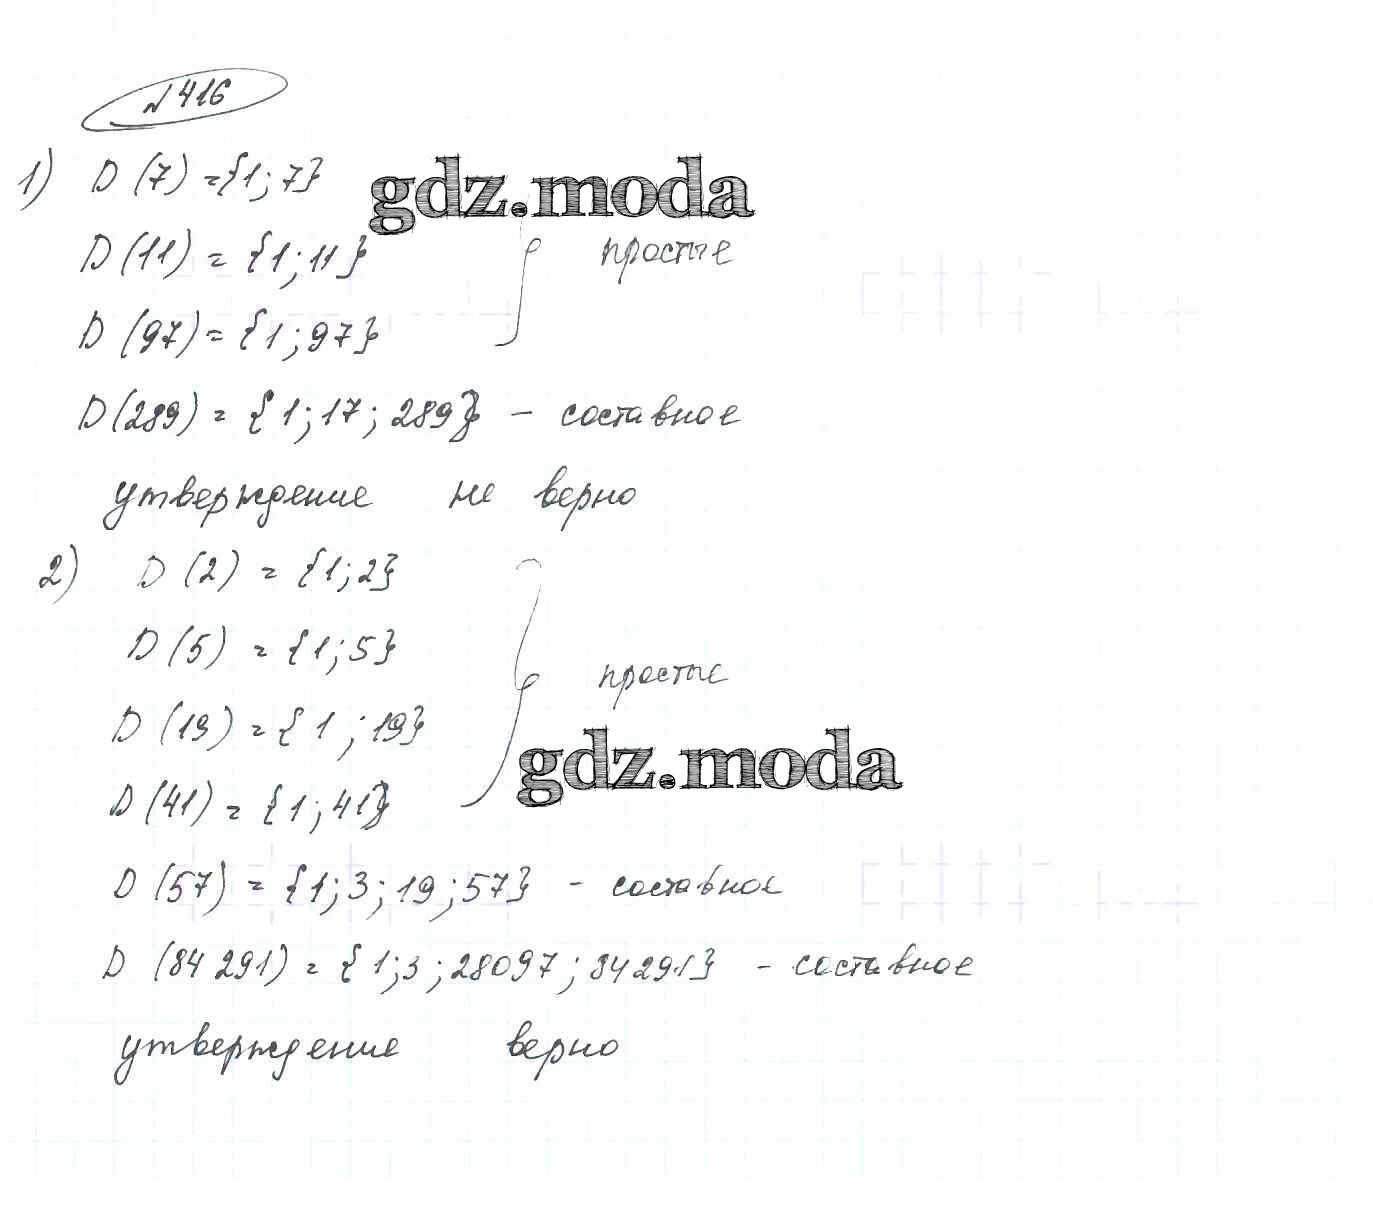 № 416
1) D (7) = {1; 7}
gdz.moda
D (11) = {1; 11}
простые
D (97) = {1; 97}
D (289) = {1; 17; 289} - составное
утверждение не верно
2) D (2) = {1; 2}
D (5) = {1; 5}
простые
D (19) = {1; 19}
gdz.moda
D (41) = {1; 41}
D (57) = {1; 3; 19; 57} - составное
D (84 291) = {1; 3; 28097; 84291} - составное
утверждение верно